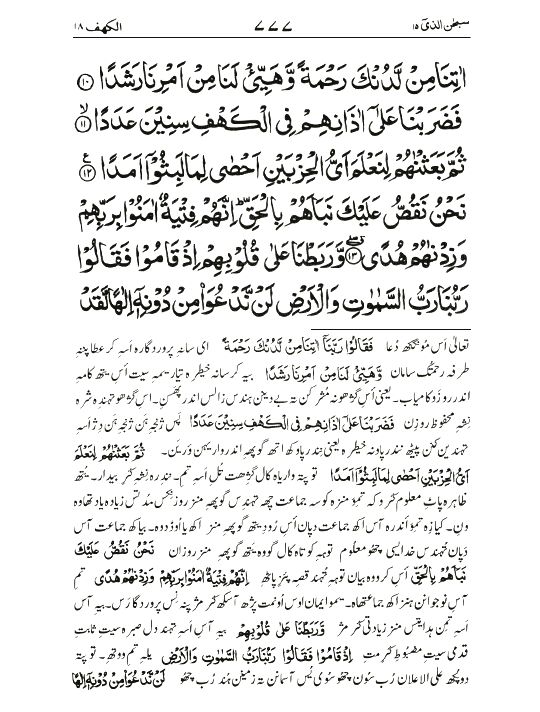 سبحٰن الذیٓ ۱۵ ۷۷۷ الکھف ۱۸
اٰتِنَا مِنْ لَّدُنْكَ رَحْمَةً وَّهَيِّئْ لَنَا مِنْ اَمْرِنَا رَشَدًا ۝۱۰
فَضَرَبْنَا عَلٰٓى اٰذَانِهِمْ فِى الْكَهْفِ سِنِيْنَ عَدَدًا ۝۱۱
ثُمَّ بَعَثْنٰهُمْ لِنَعْلَمَ اَىُّ الْحِزْبَيْنِ اَحْصٰى لِمَا لَبِثُوْٓا اَمَدًا ۝۱۲
نَحْنُ نَقُصُّ عَلَيْكَ نَبَاَهُمْ بِالْحَقِّ ؕ اِنَّهُمْ فِتْيَةٌ اٰمَنُوْا بِرَبِّهِمْ
وَزِدْنٰهُمْ هُدًى ۝۱۳ وَّرَبَطْنَا عَلٰى قُلُوْبِهِمْ اِذْ قَامُوْا فَقَالُوْا
رَبُّنَا رَبُّ السَّمٰوٰتِ وَالْاَرْضِ لَنْ نَّدْعُوَا۟ مِنْ دُوْنِهٖٓ اِلٰهًا لَّقَدْ
تعالیٰ اَس مونگکھ دُعا فَقَالُوْا رَبَّنَآ اٰتِنَا مِنْ لَّدُنْكَ رَحْمَةً ای سانہِ پروردگارہ اَسہِ کر عطا پننہِ
طرفہ رحمتُک سامان وَّهَيِّئْ لَنَا مِنْ اَمْرِنَا رَشَدًا بیہ کر سانہ خیطرہ تیار یمہ سیت اَس یتھ کامہِ
اندر روزَو کامیاب۔ یعنی اَس گژھونہ مشرکن تہ بے دینن ہندس زالس اندر پھسن۔ اِس گژھو تہندہِ شرہ
نِشہِ محفوظ روزن فَضَرَبْنَا عَلٰٓى اٰذَانِهِمْ فِى الْكَهْفِ سِنِيْنَ عَدَدًا
تہندین کنن پیٹھ نندر پاونہ خیطرہ یعنی نندر پاوکھ اتھ گوپھہِ اندر وارِیہن ؤریَن۔ ثُمَّ بَعَثْنٰهُمْ لِنَعْلَمَ
اَىُّ الْحِزْبَيْنِ اَحْصٰى لِمَا لَبِثُوْٓا اَمَدًا توپتہ واریاہ کال گژھتھ تُل اَسہِ تم۔ نندرہ نِشہِ کرِ بیدار۔ یتھ
ظاہرہ پاٹھ معلوم کرو کہ تمو منزہ کوسہ جماعت چھہ تہندس گوپھہِ منز روزنکس مدتس زیادہ یاد تھاوہ
وِنۍ۔ کیازہ تمو اندرہ آس اکھ جماعت دپان اَس رُودۍ یتھ گوپھہِ منز اکھ یا اوڈ دوہ۔ بیاکھ جماعت آس
دَپان تُہندس خدایس چھُو معلوم توہہِ کوتاہ کال گوو یتھ گوپھہِ منز روزان نَحْنُ نَقُصُّ عَلَيْكَ
نَبَاَهُمْ بِالْحَقِّ اَس کروَوہ بیان توہہِ تُہند قصہ پٔزِ پاٹھۍ اِنَّهُمْ فِتْيَةٌ اٰمَنُوْا بِرَبِّهِمْ وَزِدْنٰهُمْ هُدًى تم
آسۍ نوجوانن ہنز اکھ جماعتھاہ۔ یمو ایمان اوس اونمت پژھ آسکھ کرمژ پننِس پروردگارس۔ بیہ آس
اَسہِ تمن ہدایتس منز زیادتی کرمژ وَّرَبَطْنَا عَلٰى قُلُوْبِهِمْ بیہ آسۍ اَسہِ تہندۍ دل صبرہ سیت ثابت
قدمی سیت مضبوط کرِمتۍ اِذْ قَامُوْا فَقَالُوْا رَبُّنَا رَبُّ السَّمٰوٰتِ وَالْاَرْضِ یلہِ تم دوتھۍ۔ توپتہ
دوپکھ علی الاعلان رُب سون چھُو سُوی یُس آسمانن تہ زمینن ہُند رُب چھُو لَنْ نَّدْعُوَا۟ مِنْ دُوْنِهٖٓ اِلٰهًا